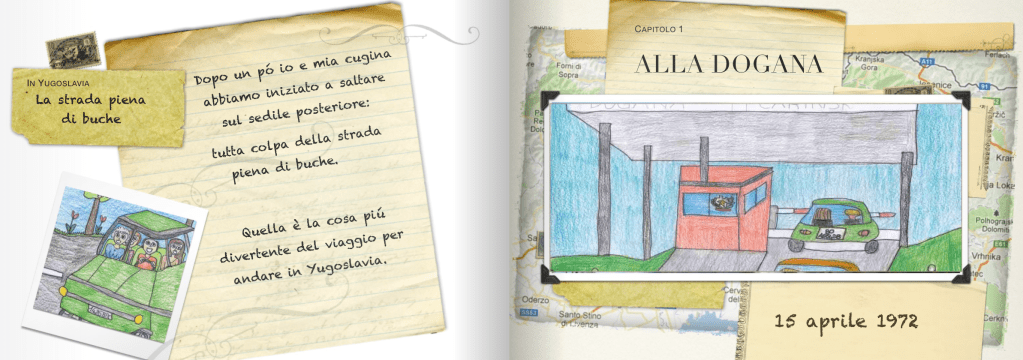 In Yugoslavia
La strada piena
di buche
Dopo un pó io e mia cugina
abbiamo iniziato a saltare
sul sedile posteriore:
tutta colpa della strada
piena di buche.
Quella è la cosa piú
divertente del viaggio per
andare in Yugoslavia.
Capitolo 1
ALLA DOGANA
Forni di
Sopra
Kranjska
Gora
A11
Jesenice
DOGANA
Oderzo
Santo Stino
di Livenza
Polhograjski
Dolomiti
E61
Vrhnika
15 aprile 1972